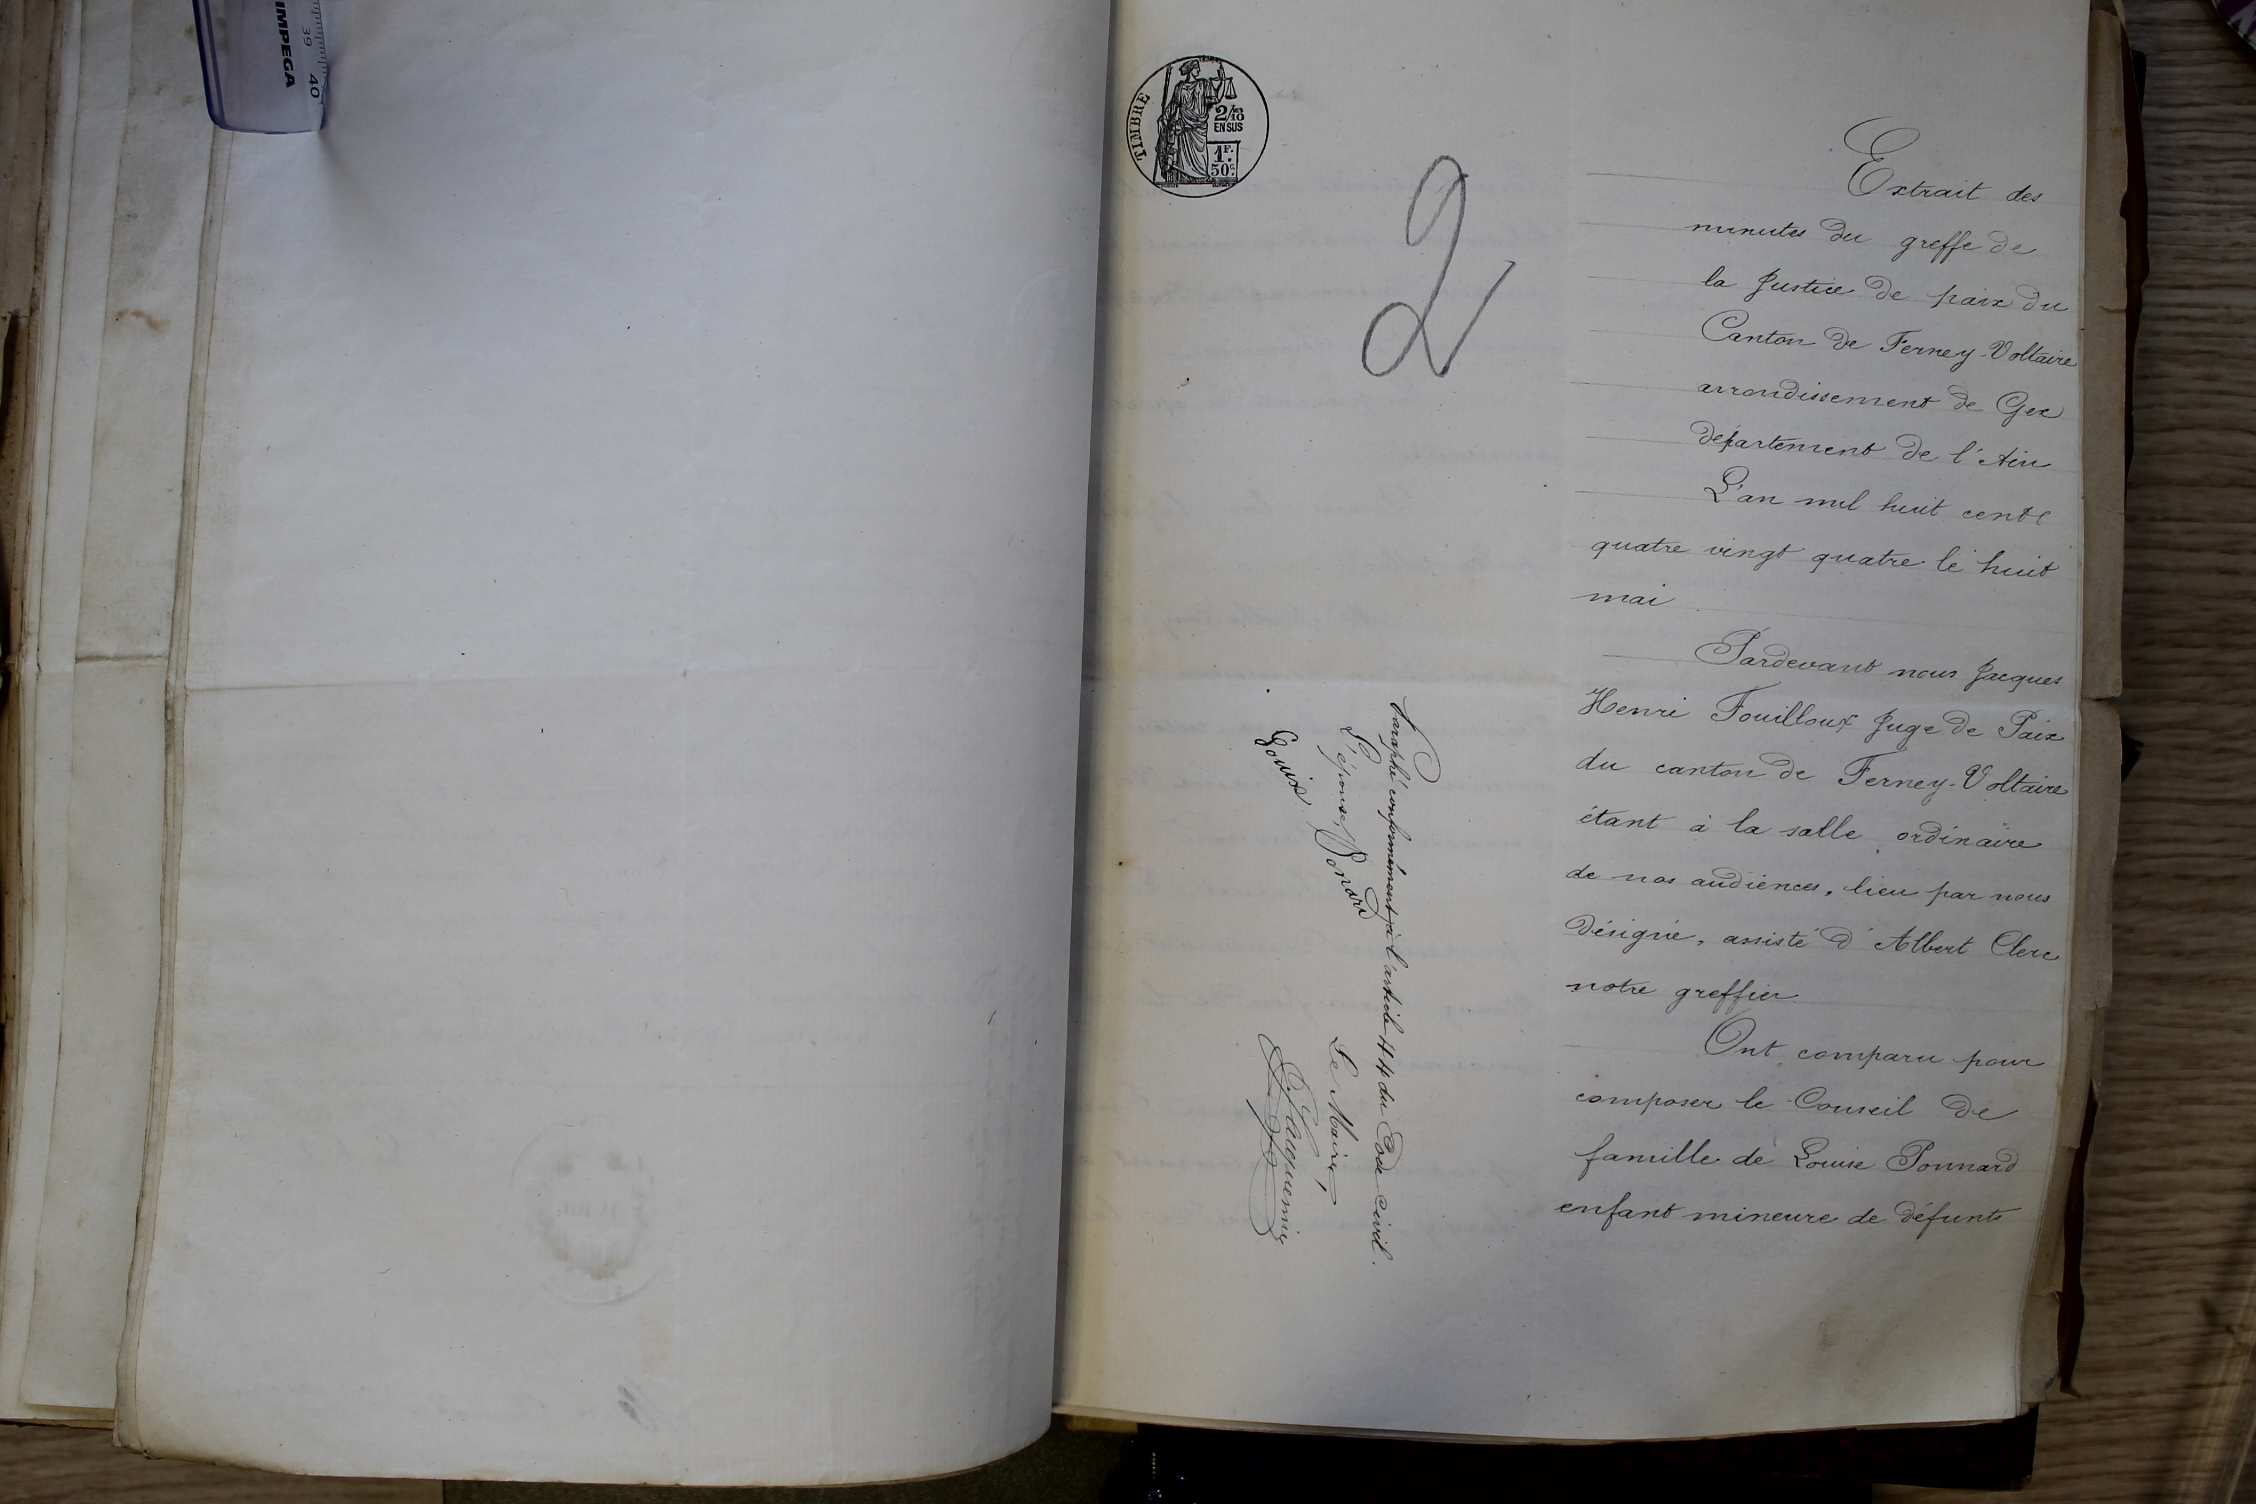 IMPEGA
39 40
TIMBRE
2/10
EN SUS
1F.
50c.
2
Extrait des
minutes du greffe de
la Justice de paix du
Canton de Ferney-Voltaire
arrondissement de Gex
département de l'Ain
L'an mil huit cent
quatre vingt quatre le huit
mai
Pardevant nous Jacques
Henri Fouilloux Juge de Paix
du canton de Ferney-Voltaire
étant à la salle ordinaire
de nos audiences, lieu par nous
désigné, assisté d'Albert Clerc
notre greffier
Ont comparu pour
composer le Conseil de
famille de Louise Ponnard
enfant mineure de défunts
Paraphé conformément à l'article 44 du Code civil.
L'épouse, Le Maire,
Louise Ponard Jacquemin